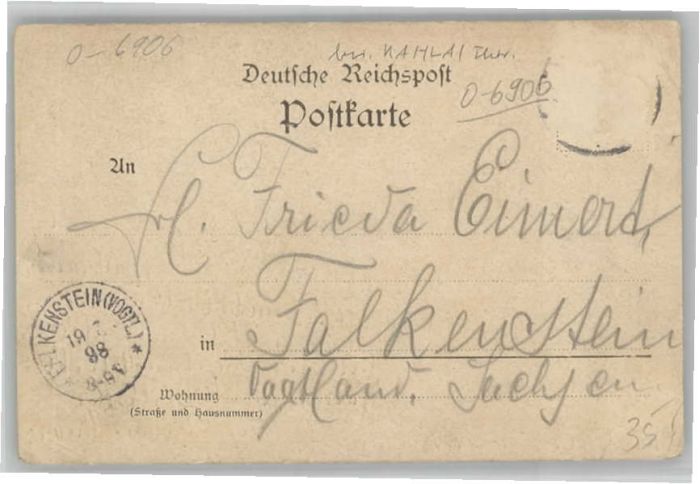 0-6906
bei KAHLA/Thür.
Deutsche Reichspost
0-6906
Postkarte
An
Frl. Frieda Eimert,
FALKENSTEIN (VOGTL.)
19
98
in Falkenstein
Vogtland, Sachsen
Wohnung
(Straße und Hausnummer)
35